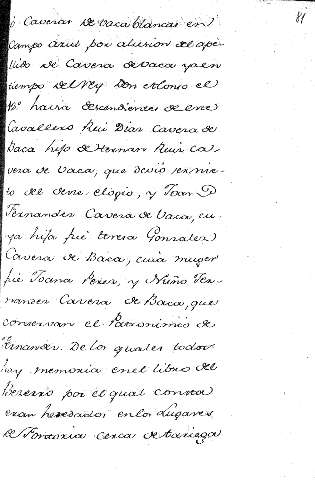 81
ó Caveras de vaca blancas en
campo azul por alusion del ape-
llido de Cavera de vaca ya en
tiempo del Rey Don Alonso el
havia descendientes de ese
Cavallero Rui Diaz Cavera de
Baca hijo de Hernan Ruiz Ca-
vera de Vaca, que devió ser nie-
to del de ese elogio, y Joan
Fernandez Cavera de Vaca, cu-
ya hija fué teresa Gonzalez
Cavera de Baca, cuia muger
fue Joana Perez, y Nuño Fer-
nandez Cavera de Baca, que
conservan el Patronimico de
Fernandez. De los quales todos
hay memoria en el libro del
Bezerro por el qual consta
eran heredados en los Lugares
de cerca de